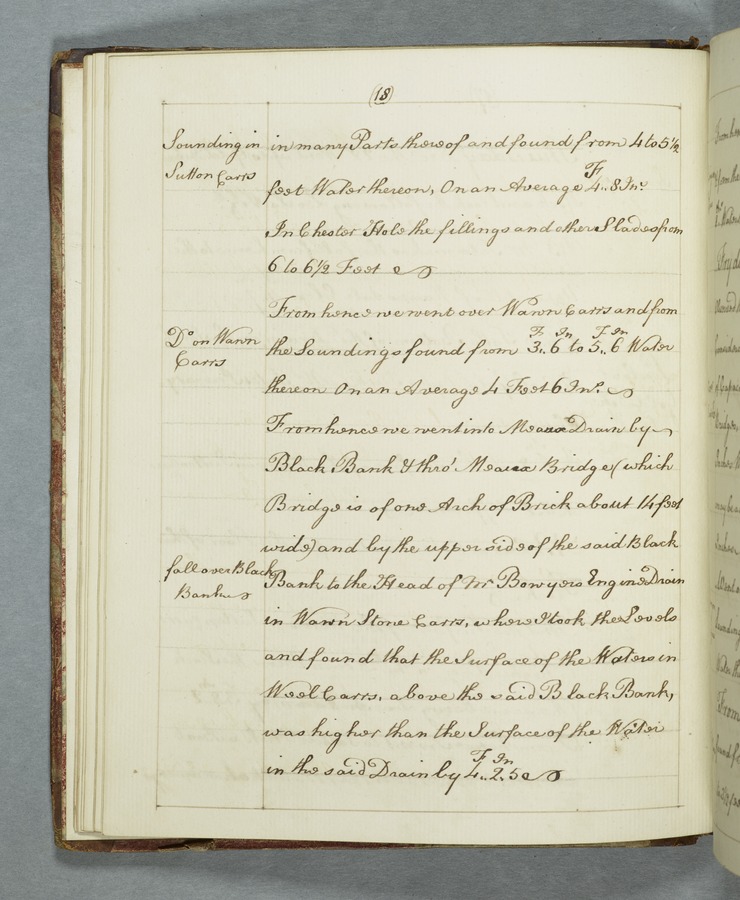 (18)
Sounding in
Sutton Carrs
in many Parts thereof and found from 4 to 5½
feet Water thereon, On an Average 4 F.. 8 Ins
In Chester Hole the fillings and other Slades from
6 to 6½ Feet
Do on Wawn
Carrs
From hence we went over Wawn Carrs and from
the Soundings found from 3 F.. 6 In to 5 F.. 6 In Water
thereon On an Average 4 Feet 6 Ins.
From hence we went into Meaux Drain by
Black Bank & thro' Meaux Bridge (which
Bridge is of one Arch of Brick about 14 feet
wide) and by the upper side of the said Black
fall over Black
Bank
Bank to the Head of Mr Bowyers Engine Drain
in Wawn Stone Carrs, where I took the Levels
and found that the Surface of the Waters in
Weel Carrs, above the said Black Bank,
was higher than the Surface of the Water
in the said Drain by 4 F.. 2 In. 5